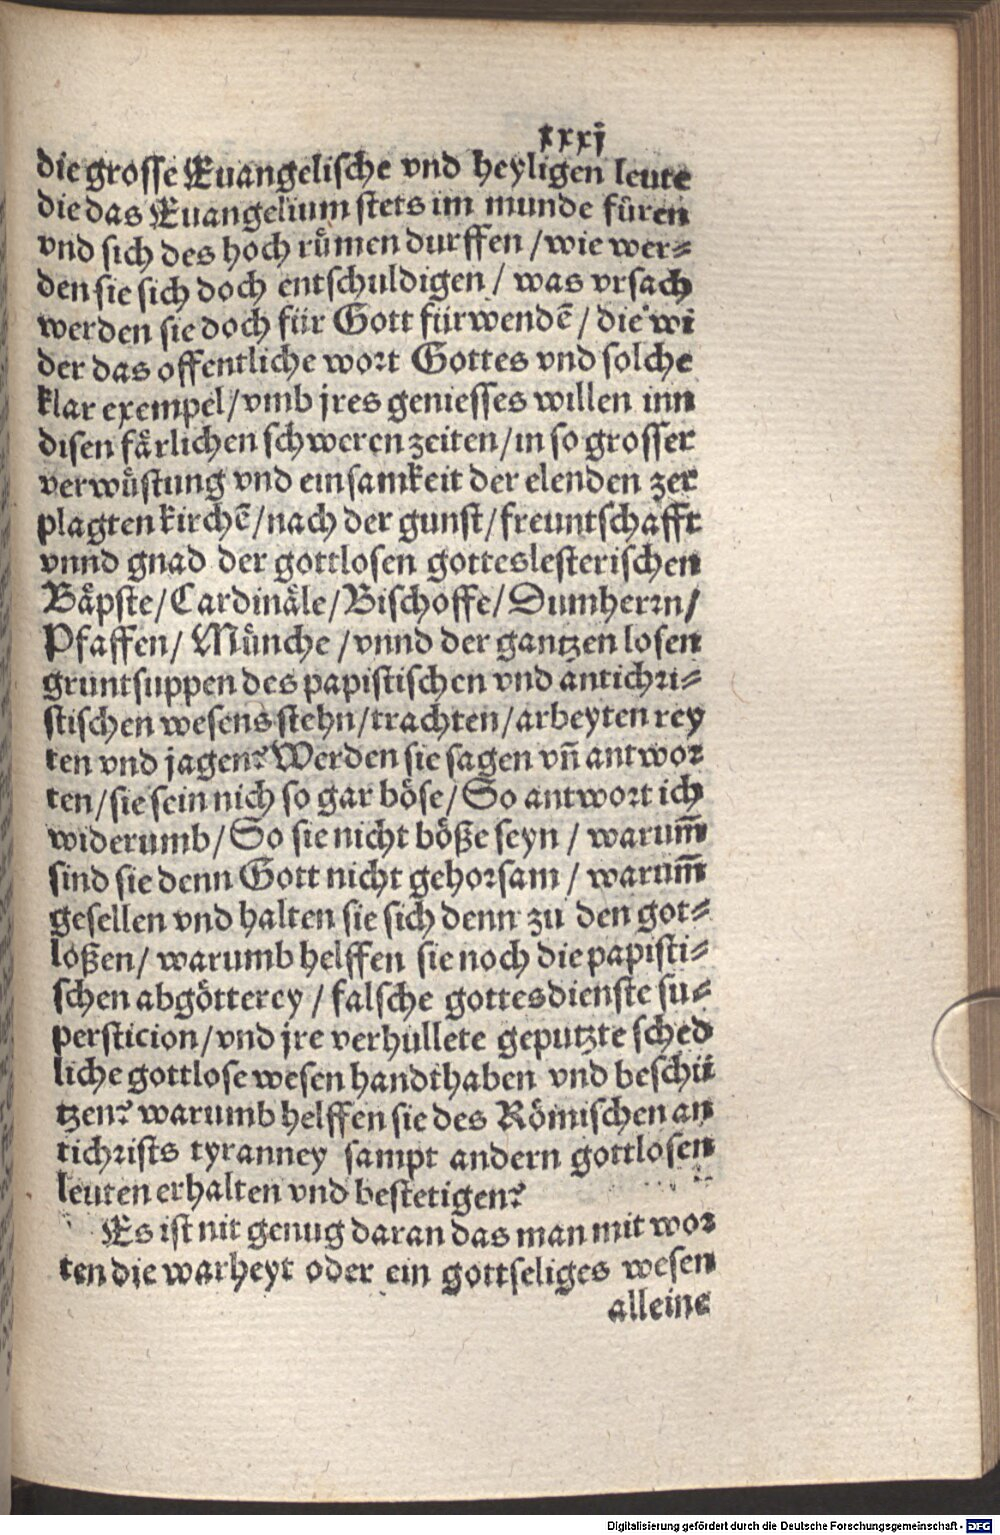 xxxj
die grosse Euangelische vnd heyligen leute
die das Euangelium stets im munde füren
vnd sich des hoch rümen durffen / wie wer⸗
den sie sich doch entschuldigen / was vrsach
werden sie doch für Gott fürwendē / die wi
der das offentliche wort Gottes vnd solche
klar exempel / vmb jres geniesses willen inn
disen färlichen schweren zeiten / in so grosser
verwüstung vnd einsamkeit der elenden zer
plagten kirchē / nach der gunst / freuntschafft
vnnd gnad der gottlosen gotteslesterischen
Bäpste / Cardinäle / Bischoffe / Dumherrn /
Pfaffen / Münche / vnnd der gantzen losen
gruntsuppen des papistischen vnd antichri⸗
stischen wesens stehn / trachten / arbeyten rey
ten vnd jagen? Werden sie sagen vñ antwor
ten / sie sein nich so gar böse / So antwort ich
widerumb / So sie nicht böße seyn / warum̄
sind sie denn Gott nicht gehorsam / warum̄
gesellen vnd halten sie sich denn zu den got⸗
loßen / warumb helffen sie noch die papisti⸗
schen abgötterey / falsche gottesdienste su⸗
persticion / vnd jre verhullete geputzte sched
liche gottlose wesen handthaben vnd beschü
tzen? warumb helffen sie des Römischen an
tichrists tyranney sampt andern gottlosen
leuten erhalten vnd bestetigen?
Es ist nit genug daran das man mit wor
ten die warheyt oder ein gottseliges wesen
alleine
Digitalisierung gefördert durch die Deutsche Forschungsgemeinschaft - DFG